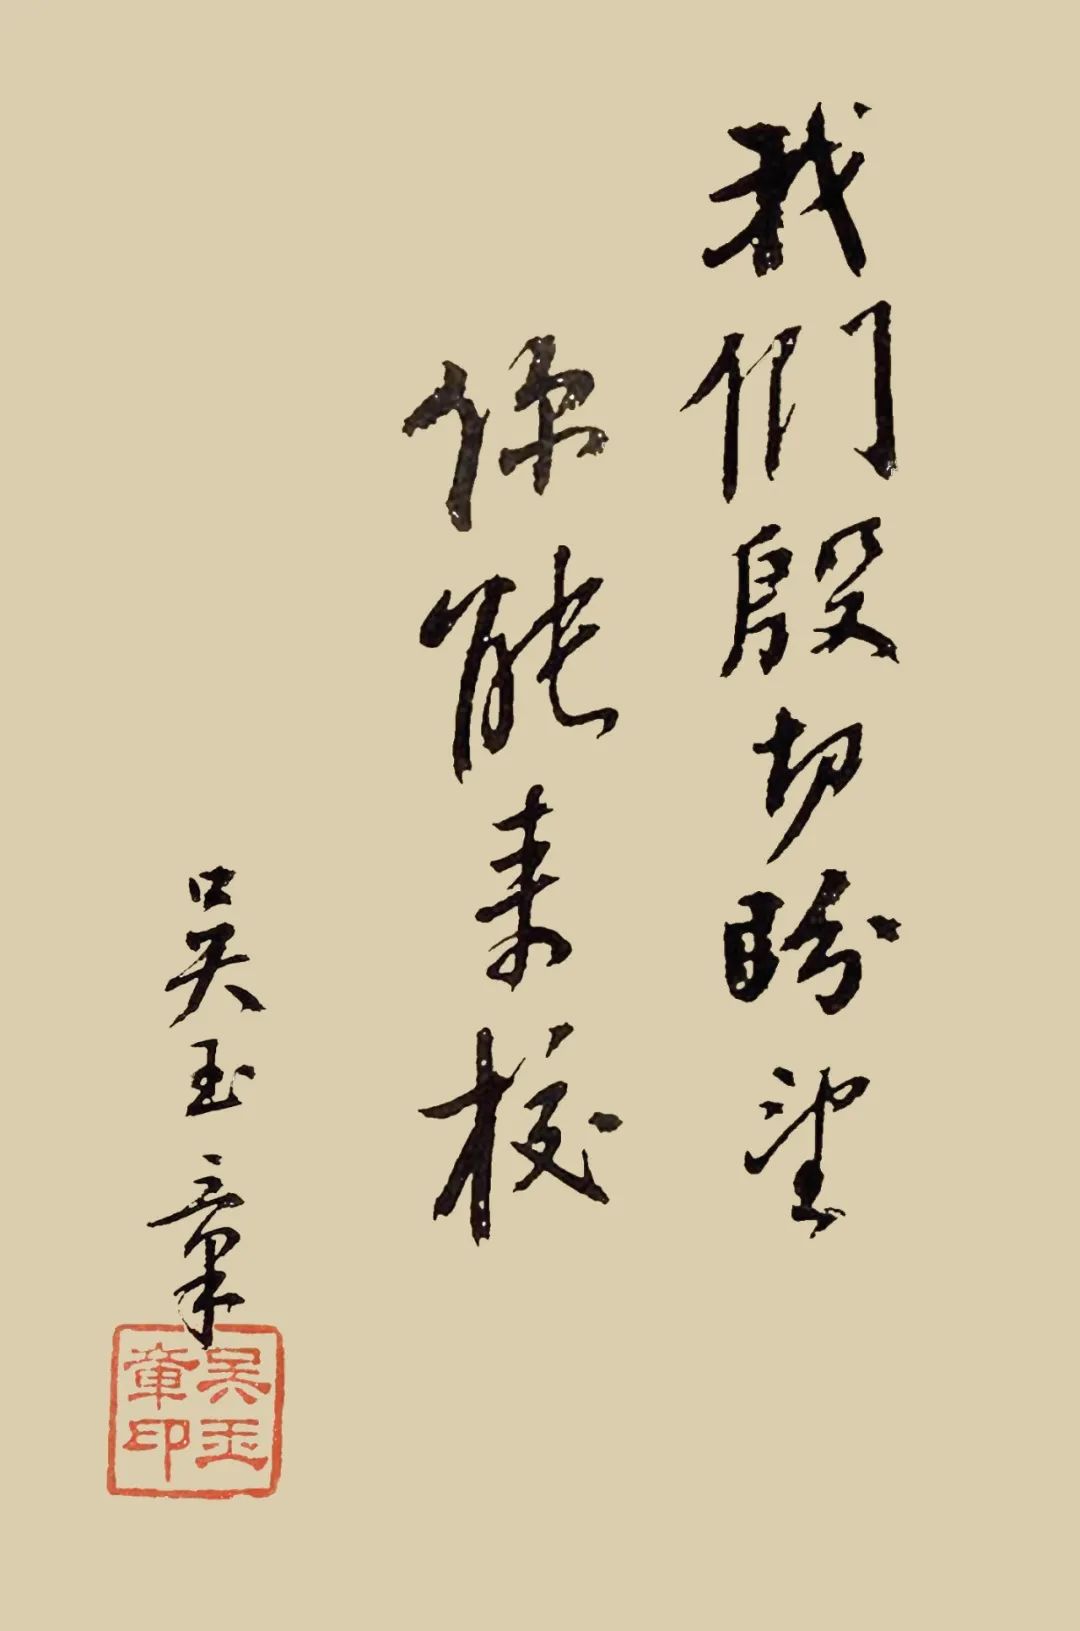 我们殷切盼望
你能来校
吴玉章
吴玉章印